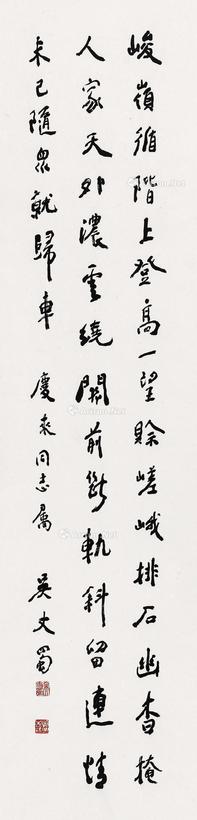 峻嶺循階上登高一望賒嵯峨排石幽杳掩
人家天外濃雲繞關前斷軌斜留連情
未已隨眾就歸車 慶來同志屬 吴丈蜀